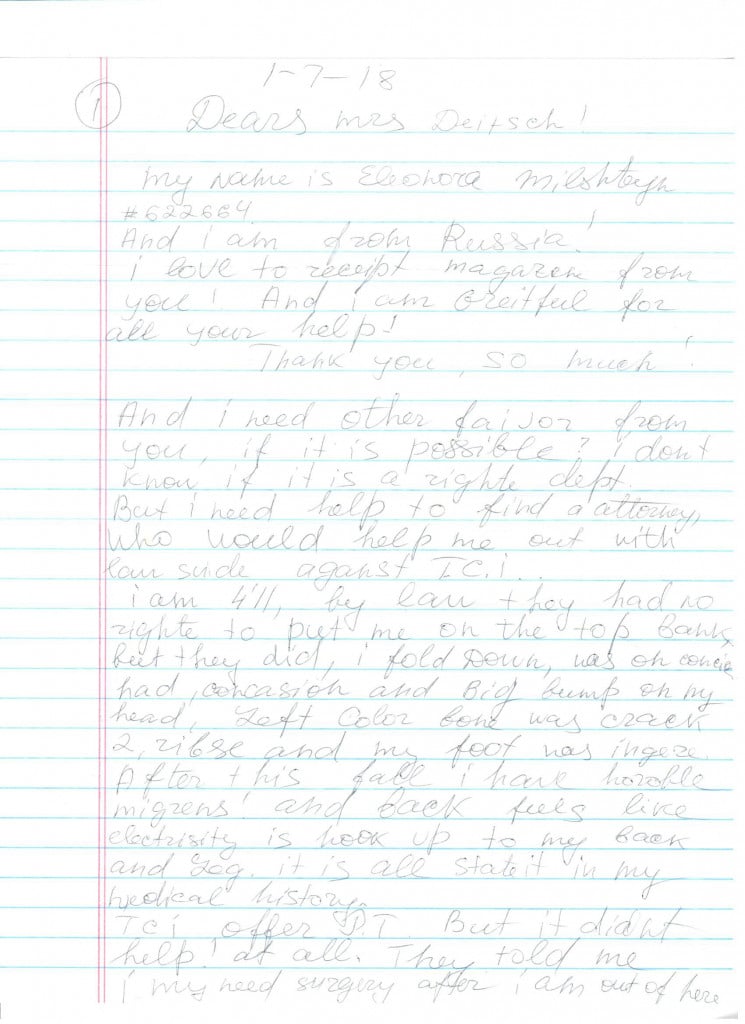 1-7-18
1
Dears mrs Deitsch!
my name is Eleonora Milshteyn
#622664
And i am from Russia!
i love to receipt magazen from
you! And i am Greitful for
all your help!
Thank you, so much!
And i need other faivor from
you, if it is possible? i don't
know if it is a righte dept.
But i need help to find a attorney,
who would help me out with
law suide against T.C.i..
i am 4'11, by law they had no
righte to put me on the top Bank,
but they did, i fold Down, was on concie
had, concasion and Big bump on my
head, Left Color bone was crack
2, ribse and my foot was ingere.
After this fall i have horoble
migrens! and back feels like
electrisity is hook up to my back
and Leg. it is all stateit in my
medical history.
TCi offer P.T. But it didn't
help! at all. They told me
i my need surgery after i am out of here